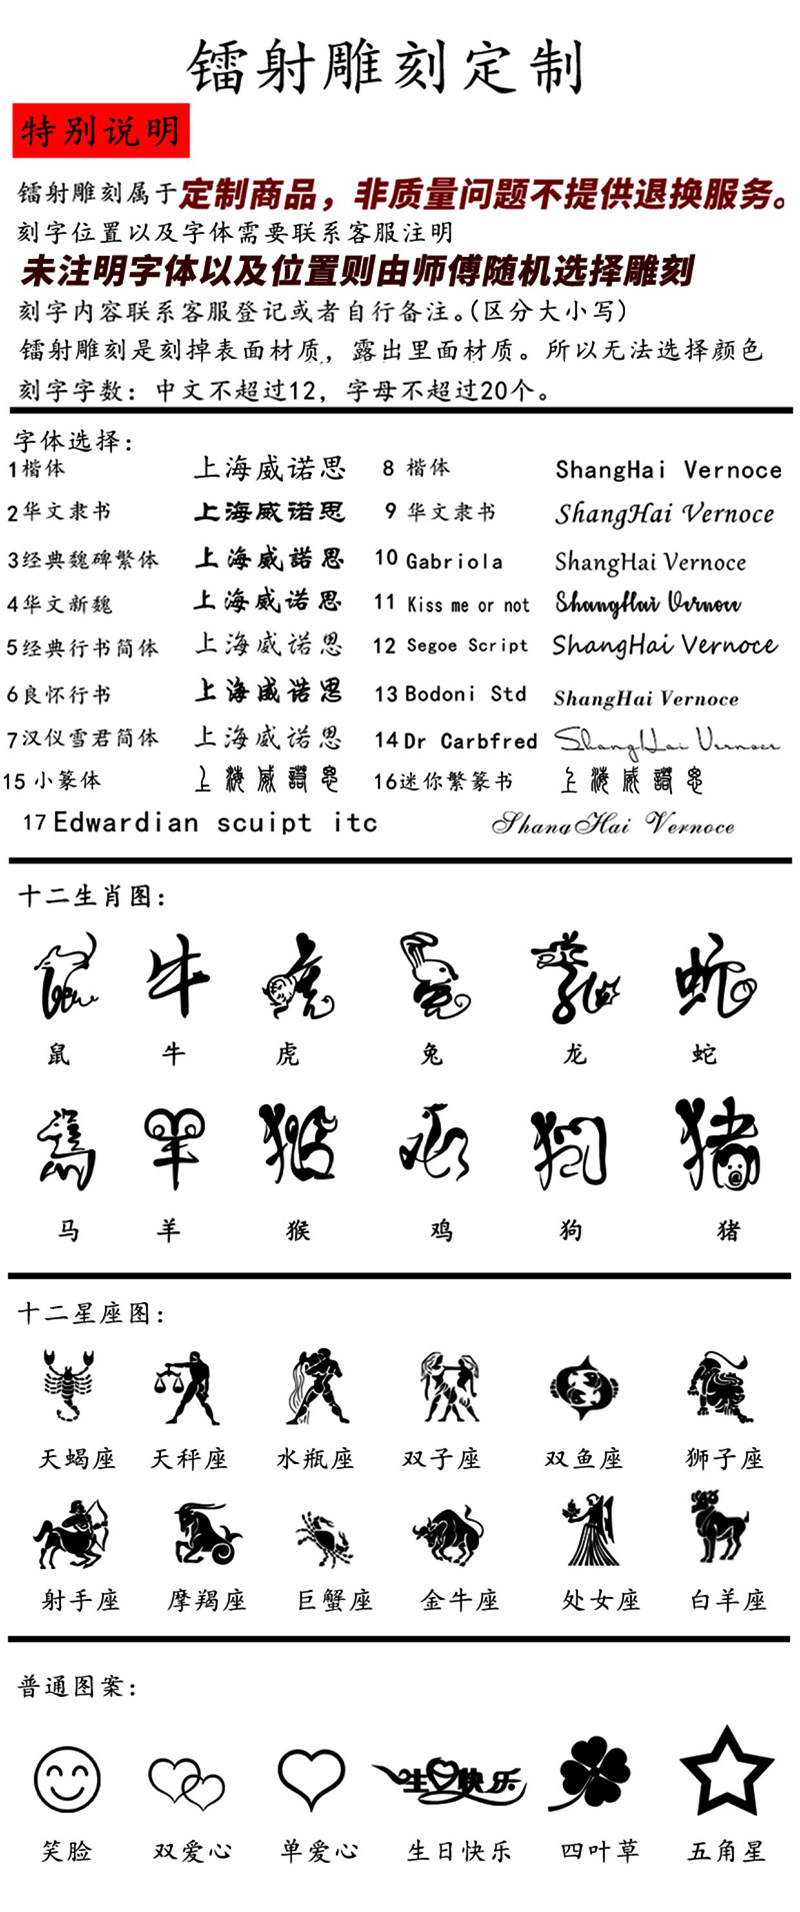 镭射雕刻定制
特别说明
镭射雕刻属于定制商品，非质量问题不提供退换服务。
刻字位置以及字体需要联系客服注明
未注明字体以及位置则由师傅随机选择雕刻
刻字内容联系客服登记或者自行备注。(区分大小写)
镭射雕刻是刻掉表面材质，露出里面材质。所以无法选择颜色
刻字字数：中文不超过12，字母不超过20个。
字体选择：
1楷体 上海威诺思 8 楷体 ShangHai Vernoce
2华文隶书 上海威诺思 9 华文隶书 ShangHai Vernoce
3经典魏碑繁体 上海威諾思 10 Gabriola ShangHai Vernoce
4华文新魏 上海威诺思 11 Kiss me or not ShangHai Vernoce
5经典行书简体 上海威诺思 12 Segoe Script ShangHai Vernoce
6良怀行书 上海威诺思 13 Bodoni Std ShangHai Vernoce
7汉仪雪君简体 上海威诺思 14 Dr Carbfred ShangHai Vernoce
15 小篆体 上海威諾思 16迷你繁篆书 上海威諾思
17 Edwardian scuipt itc ShangHai Vernoce
十二生肖图：
鼠 牛 虎 兔 龙 蛇
鼠 牛 虎 兔 龙 蛇
马 羊 猴 鸡 狗 猪
马 羊 猴 鸡 狗 猪
十二星座图：
天蝎座 天秤座 水瓶座 双子座 双鱼座 狮子座
射手座 摩羯座 巨蟹座 金牛座 处女座 白羊座
普通图案：
生日快乐
笑脸 双爱心 单爱心 生日快乐 四叶草 五角星